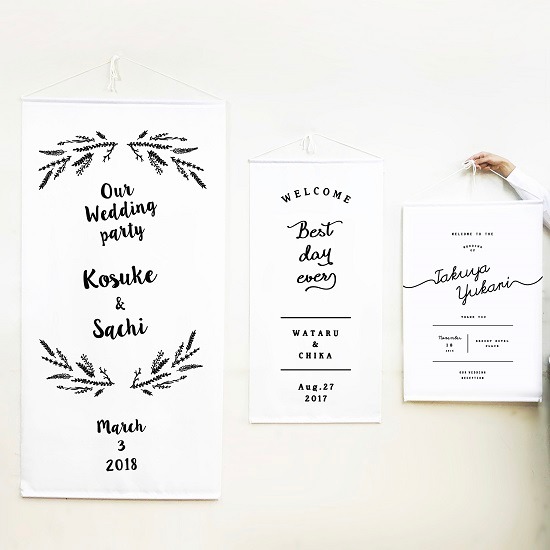 Our
Wedding
party
Kosuke
&
Sachi
March
3
2018
WELCOME
Best
day
ever
WATARU
&
CHIKA
Aug.27
2017
WELCOME TO THE
WEDDING
OF
Takuya
Yukari
THANK YOU
November
18
RESORT HOTEL
PLACE
OUR WEDDING
RECEPTION